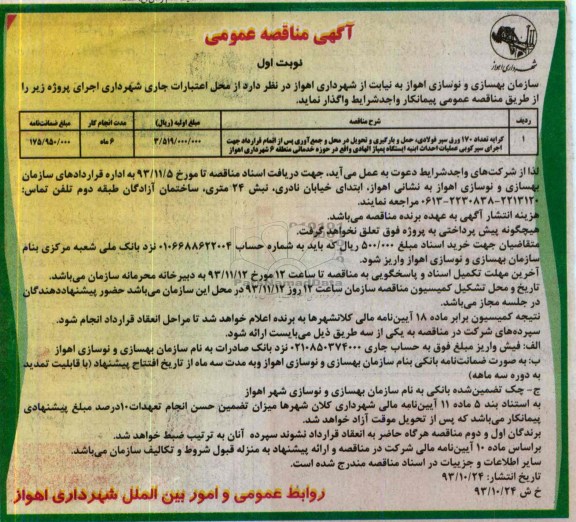 آگهی مناقصه عمومی
نوبت اول
شهرداری اهواز
سازمان بهسازی و نوسازی اهواز به نیابت از شهرداری اهواز در نظر دارد از محل اعتبارات جاری شهرداری اجرای پروژه زیر را
از طریق مناقصه عمومی پیمانکار واجدشرایط واگذار نماید.
ردیف شرح مناقصه مبلغ اولیه (ریال) مدت انجام کار مبلغ ضمانت‌نامه
۱ کرایه تعداد ۱۷۰ ورق سپر فولادی، حمل و بارگیری و تحویل در محل و جمع‌آوری پس از اتمام قرارداد جهت ۳/۵۱۹/۰۰۰/۰۰۰ ۶ ماه ۱۷۵/۹۵۰/۰۰۰
اجرای سپرکوبی عملیات احداث ابنیه ایستگاه پمپاژ الهادی واقع در حوزه خدماتی منطقه ۶ شهرداری اهواز
لذا از شرکت‌های واجدشرایط دعوت به عمل می‌آید، جهت دریافت اسناد مناقصه تا مورخ ۹۳/۱۱/۵ به اداره قراردادهای سازمان
بهسازی و نوسازی اهواز به نشانی اهواز، ابتدای خیابان نادری، نبش ۲۴ متری، ساختمان آزادگان طبقه دوم تلفن تماس:
۲۲۱۳۱۲۰-۲۲۳۰۸۳۸-۰۶۱۳ مراجعه نمایند.
هزینه انتشار آگهی به عهده برنده مناقصه می‌باشد.
هیچگونه پیش پرداختی به پروژه فوق تعلق نخواهد گرفت.
متقاضیان جهت خرید اسناد مبلغ ۵۰۰/۰۰۰ ریال که باید به شماره حساب ۰۱۰۶۶۸۸۶۲۲۰۰۴ نزد بانک ملی شعبه مرکزی بنام
سازمان بهسازی و نوسازی اهواز واریز شود.
آخرین مهلت تکمیل اسناد و پاسخگویی به مناقصه تا ساعت ۱۲ مورخ ۹۳/۱۱/۱۲ به دبیرخانه محرمانه سازمان می‌باشد.
تاریخ و محل تشکیل کمیسیون مناقصه سازمان ساعت ۱۲ روز ۹۳/۱۱/۱۲ در محل این سازمان می‌باشد حضور پیشنهاددهندگان
در جلسه مجاز می‌باشد.
نتیجه کمیسیون برابر ماده ۱۸ آیین‌نامه مالی کلانشهرها به برنده اعلام خواهد شد تا مراحل انعقاد قرارداد انجام شود.
سپرده‌های شرکت در مناقصه به یکی از سه طریق ذیل می‌بایست ارائه شود.
الف: فیش واریز مبلغ فوق به حساب جاری ۰۲۱۰۸۵۰۳۷۴۰۰۰ نزد بانک صادرات به نام سازمان بهسازی و نوسازی اهواز
ب: به صورت ضمانت‌نامه بانکی بنام سازمان بهسازی و نوسازی اهواز وبه مدت سه ماه از تاریخ افتتاح پیشنهاد (با قابلیت تمدید
به دوره سه ماهه)
ج- چک تضمین‌شده بانکی به نام سازمان بهسازی و نوسازی شهر اهواز
به استناد بند ۵ ماده ۱۱ آیین‌نامه مالی شهرداری کلان شهرها میزان تضمین حسن انجام تعهدات۱۰درصد مبلغ پیشنهادی
پیمانکار می‌باشد که پس از تحویل موقت آزاد خواهد شد.
برندگان اول و دوم مناقصه هرگاه حاضر به انعقاد قرارداد نشوند سپرده آنان به ترتیب ضبط خواهد شد.
براساس ماده ۱۰ آیین‌نامه مالی شرکت در مناقصه و ارائه پیشنهاد به منزله قبول شروط و تکالیف سازمان می‌باشد.
سایر اطلاعات و جزییات در اسناد مناقصه مندرج شده است.
تاریخ انتشار: ۹۳/۱۰/۲۴
خ ش ۹۳/۱۰/۲۴
روابط عمومی و امور بین الملل شهرداری اهواز